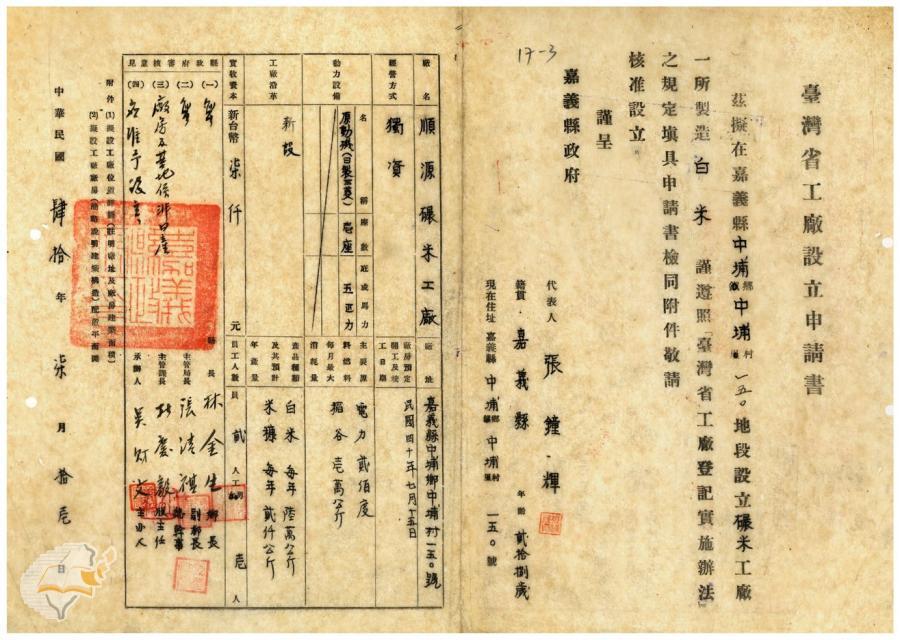 17-3
臺灣省工廠設立申請書
茲擬在嘉義縣中埔鄉中埔村一五〇地段設立碾米工廠
一所製造白米 謹遵照「臺灣省工廠登記實施辦法」
之規定填具申請書檢同附件敬請
核准設立
謹呈
嘉義縣政府
代表人 張鐘輝
籍貫 嘉義縣 年齡 貳拾捌歲
現在住址 嘉義縣中埔鄉中埔村一五〇號
廠名 順源碾米工廠
廠址 嘉義縣中埔鄉中埔村一五〇號
經營方式 獨資
廠房預定開工及竣工日期 民國四十年七月十五日
動力設備 名稱 座數 座或馬力
原動機 壱座 五匹力
主要原料燃料每月最大消耗量 電力 貳佰度
稻谷 壱萬公斤
工廠沿革 新設
產品種類及其預計年產量 白米 每年陸萬公斤
米糠 每年貳仟公斤
實收資本 新台幣 柒仟 元
員工人數 員 貳人 工 壱人
縣政府審核意見
(一)
(二)
(三) 廠房及基地係非日產
(四) 名准予設立
嘉義縣政府印
縣長 林金生
主管局長
主管課長
承辦人
鄉長
副鄉長
總幹事
主任
主办人
附件 (1) 擬設工廠位置詳圖(註明廠址及廠房建築面積)
(2) 擬設工廠廠房(動力設備建築構造)配置平面圖
中華民國 肆拾年 柒月 拾壱日